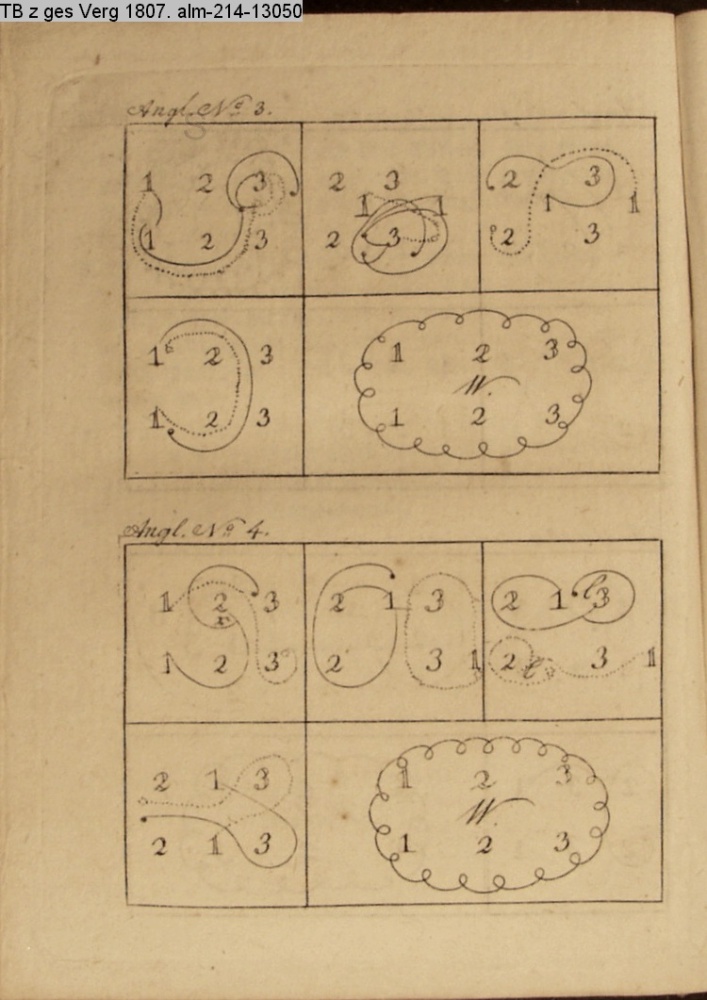 TB z ges Verg 1807. alm-214-13050
Angl. No 3.
1 2 3
1 2 3
2 3
1 1
2 3
2 3
1 1
2 3
1 2 3
1 2 3
1 2 3
W.
1 2 3
Angl. No 4.
1 2 3
1 2 3
2 1 3
2 3 1
2 1 3
2 3 1
2 1 3
2 1 3
1 2 3
W.
1 2 3